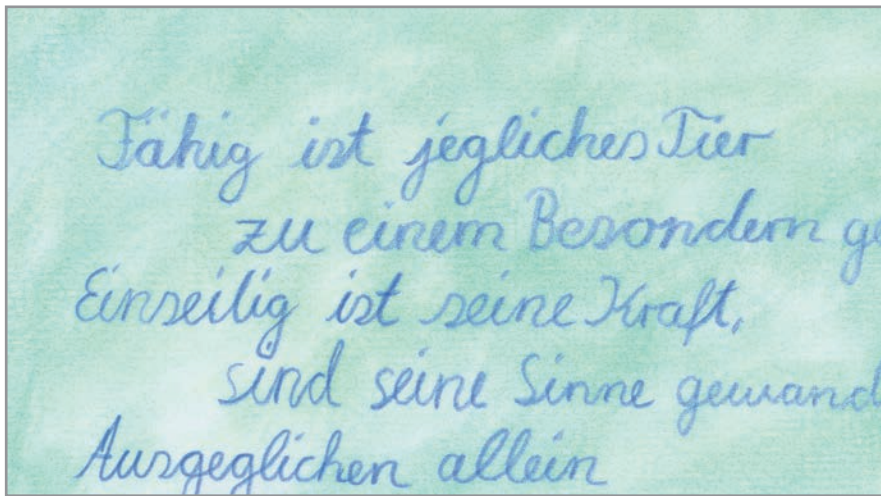 Fähig ist jegliches Tier
zu einem Besondern ge
Einseilig ist seine Kraft,
sind seine Sinne gewand
Ausgeglichen allein